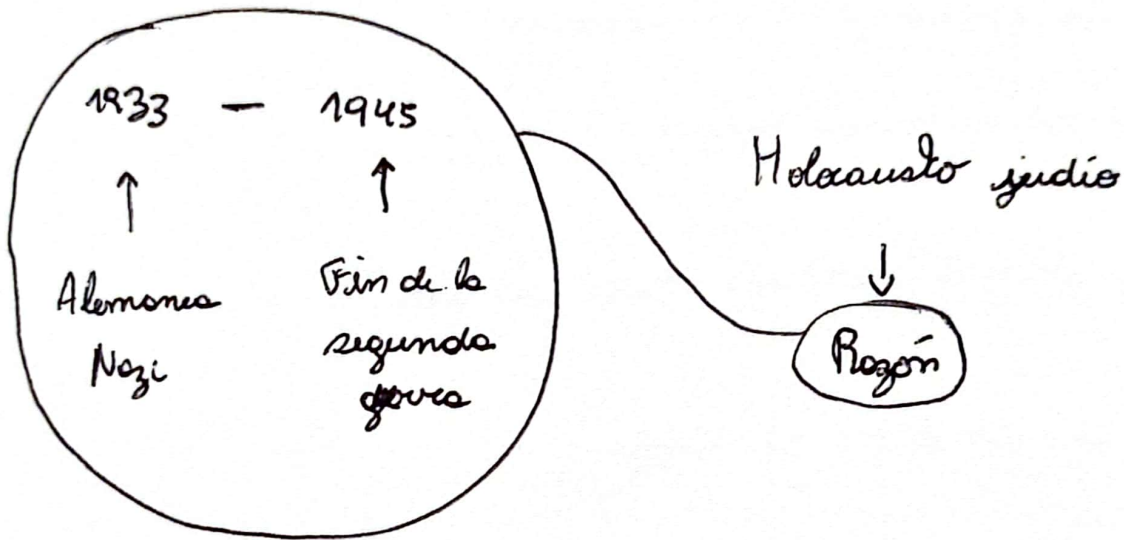 1933 — 1945
Alemania
Nazi
Fin de la
segunda
guerra
Holocausto judío
Razón